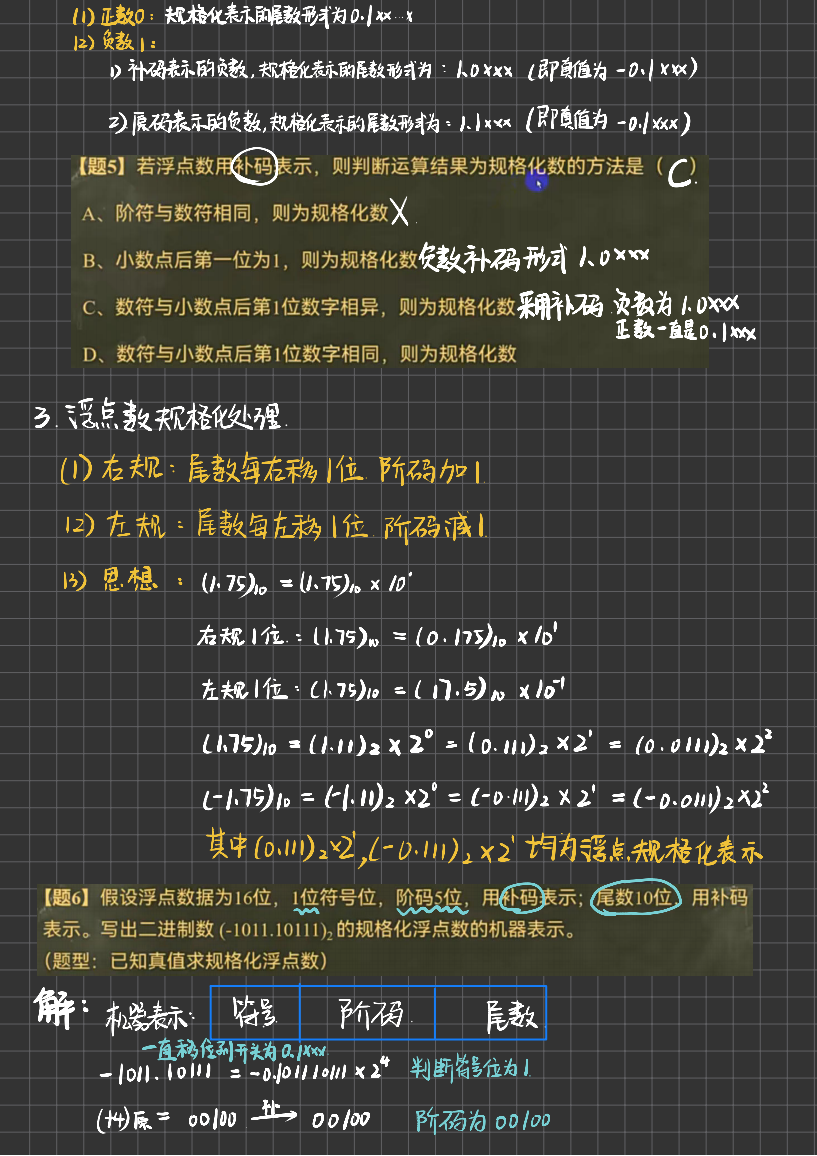 (1) 正数0：规格化表示的尾数形式为0.1xx…x
(2) 负数1：
1) 补码表示的负数，规格化表示的尾数形式为：1.0xxx (即真值为 -0.1xxx)
2) 原码表示的负数，规格化表示的尾数形式为：1.1xxx (即真值为 -0.1xxx)
【题5】若浮点数用补码表示，则判断运算结果为规格化数的方法是（ C ）
A、阶符与数符相同，则为规格化数 X
B、小数点后第一位为1，则为规格化数 负数补码形式 1.0xxx
C、数符与小数点后第1位数字相异，则为规格化数 采用补码 负数为1.0xxx
正数一直是0.1xxx
D、数符与小数点后第1位数字相同，则为规格化数
3. 浮点数规格化处理.
(1) 右规：尾数每右移1位. 阶码加1
(2) 左规：尾数每左移1位. 阶码减1
(3) 思想：(1.75)₁₀ = (1.75)₁₀ × 10⁰
右规1位：(1.75)₁₀ = (0.175)₁₀ × 10¹
左规1位：(1.75)₁₀ = (17.5)₁₀ × 10⁻¹
(1.75)₁₀ = (1.11)₂ × 2⁰ = (0.111)₂ × 2¹ = (0.0111)₂ × 2²
(-1.75)₁₀ = (-1.11)₂ × 2⁰ = (-0.111)₂ × 2¹ = (-0.0111)₂ × 2²
其中(0.111)₂×2¹, (-0.111)₂×2¹ 均为浮点规格化表示
【题6】假设浮点数据为16位，1位符号位，阶码5位，用补码表示；尾数10位，用补码
表示。写出二进制数 (-1011.10111)₂ 的规格化浮点数的机器表示。
(题型：已知真值求规格化浮点数)
解：机器表示: 符号 阶码 尾数
一直移位到开头为0.1xxx
-1011.10111 = -0.101110111 × 2⁴ 判断符号位为1
(+4)原 = 00100 补→ 00100 阶码为00100